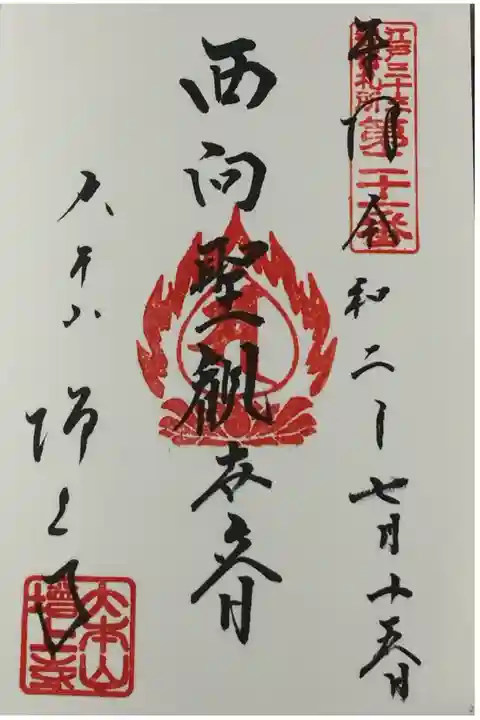 江戸三十三
観音札所第二十一番
奉拝 令和二年七月十五日
西向聖観世音
大本山 増上寺
大本山
増上寺